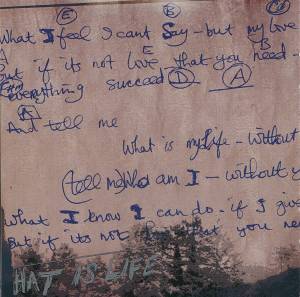 E B
What I feel I cant Say - but my love
E B
but if its not love - that you need -
everything succeed D A
A
And tell me
What is my life - without
(tell me) who am I - without y
What I know I can do - if I give
But if its not that you nee
HAT IS LIFE